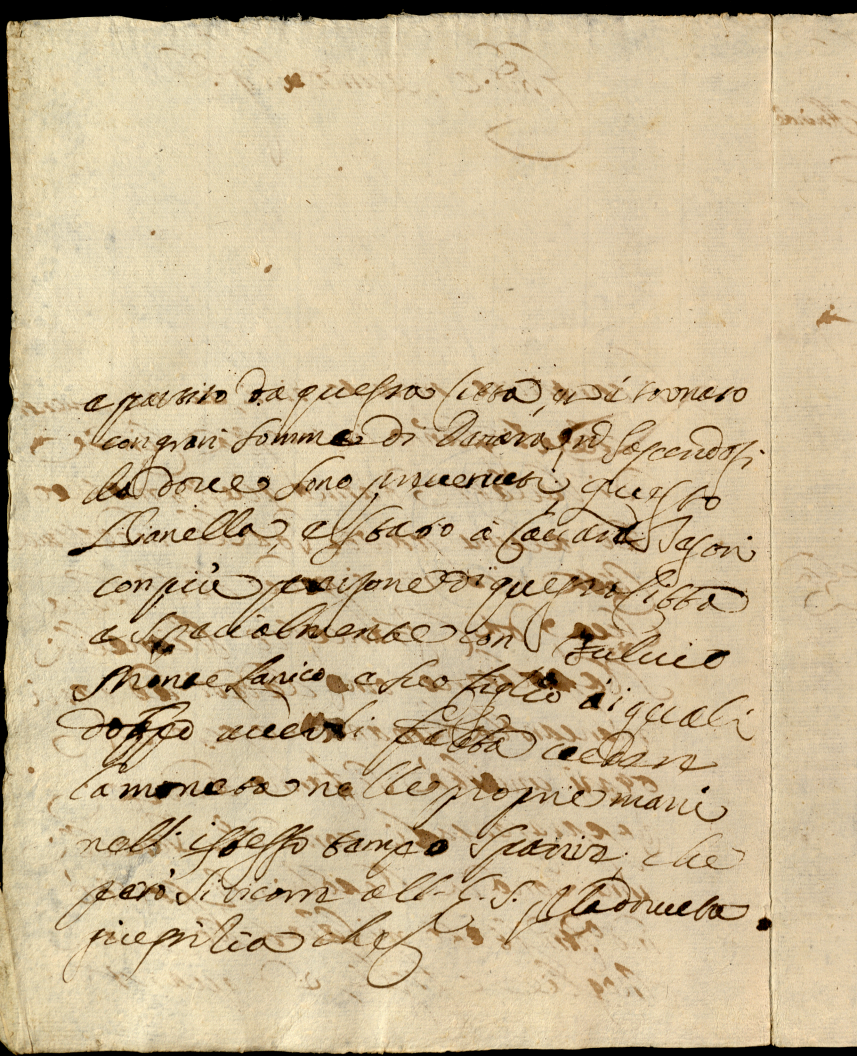 e partito da questa Città, e di tornato
con gran somma di Danaro, non sapendosi
da dove sono provenuti, questo
Vianella, e stato a Cavare Tesori
con più persone di questa Città
e specialmente con Fulvio
Monte Sanico e suo figlio ai quali
doppo averli fatta vedere
la moneta nelle proprie mani
nell' istesso tempo sparire, che
però si ricorre all' E. S. p. la dovuta
giustitia che